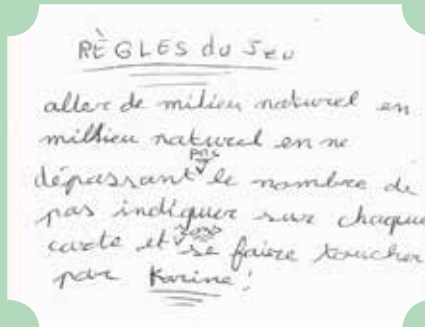 RÈGLES du Jeu
aller de milieu naturel en
millieu naturel en ne
dépassant pas le nombre de
pas indiquer sur chaque
carte et sans se faire toucher
par Karine !